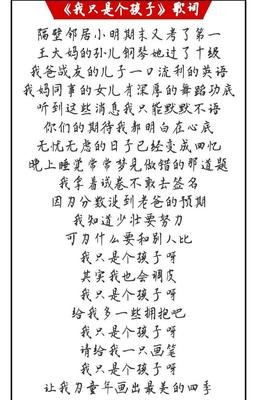 《我只是个孩子》歌词
隔壁邻居小明期末又考了第一
王大妈的孙儿钢琴她过了十级
我爸战友的儿子一口流利的英语
我妈同事的女儿有深厚的舞蹈功底
听到这些消息我只能默默不语
你们的期待我都明白在心底
无忧无虑的日子已经变成回忆
晚上睡觉常常梦见做错的那道题
我拿着试卷不敢去签名
因为分数没到老爸的预期
我知道少壮要努力
可为什么要和别人比
我只是个孩子呀
其实我也会调皮
我只是个孩子呀
给我多一些拥抱吧
我只是个孩子呀
请给我一只画笔
我只是个孩子呀
让我为童年画出最美的四季